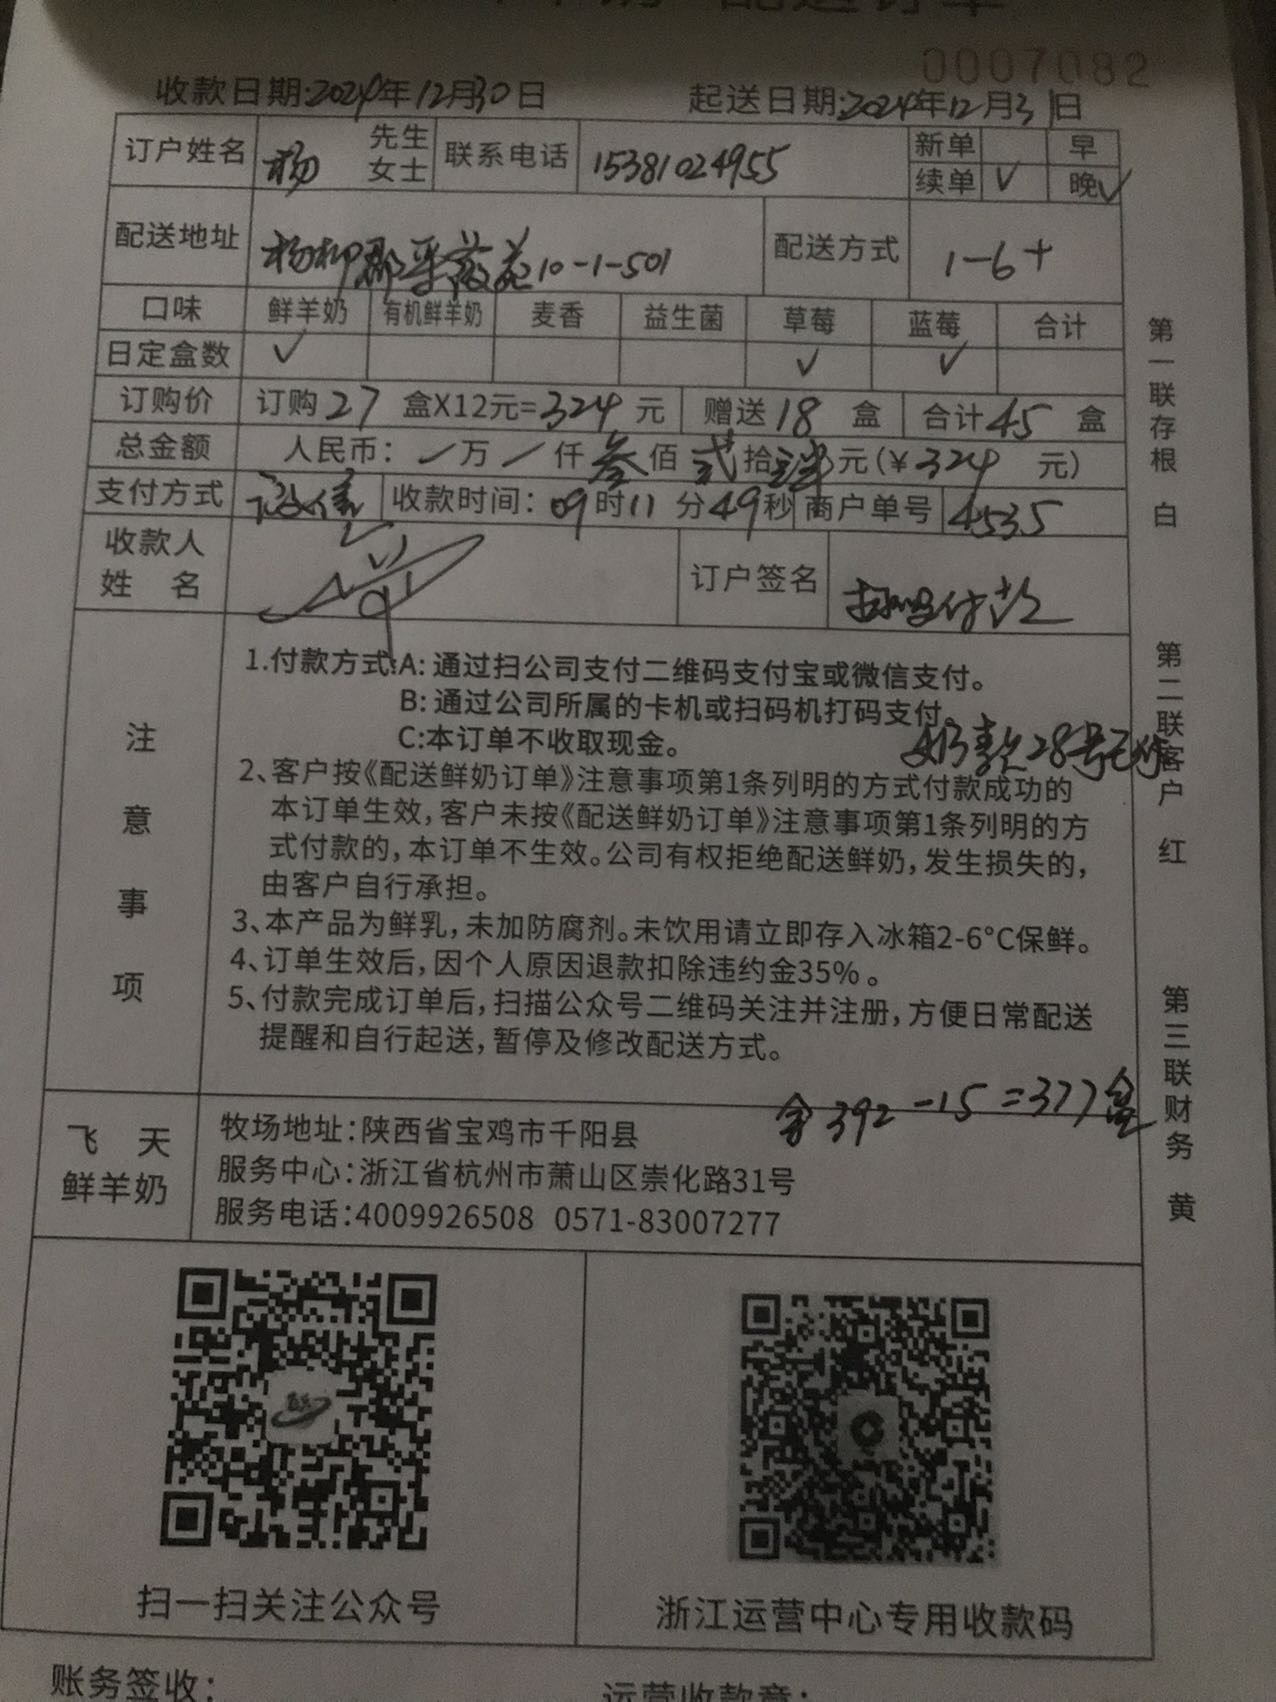 配送订单
0007082
收款日期:2024年12月30日 起送日期:2024年12月31日
订户姓名 杨 先生 女士 联系电话 15381024955 新单 早 续单 √ 晚√
配送地址 杨柳郡采薇苑10-1-501 配送方式 1-6+
口味 鲜羊奶 有机鲜羊奶 麦香 益生菌 草莓 蓝莓 合计
日定盒数 √ √ √
订购价 订购27盒X12元=324元 赠送18盒 合计45盒
总金额 人民币: /万/仟叁佰贰拾肆元(¥324元)
支付方式 微信 收款时间: 09时11分49秒 商户单号 4535
收款人
姓 名
订户签名 扫码付款
注意事项
1.付款方式:A: 通过扫公司支付二维码支付宝或微信支付。
B: 通过公司所属的卡机或扫码机打码支付。
C:本订单不收取现金。
奶款28号已付
2、客户按《配送鲜奶订单》注意事项第1条列明的方式付款成功的
本订单生效,客户未按《配送鲜奶订单》注意事项第1条列明的方
式付款的,本订单不生效。公司有权拒绝配送鲜奶,发生损失的,
由客户自行承担。
3、本产品为鲜乳,未加防腐剂。未饮用请立即存入冰箱2-6°C保鲜。
4、订单生效后,因个人原因退款扣除违约金35%。
5、付款完成订单后,扫描公众号二维码关注并注册,方便日常配送
提醒和自行起送,暂停及修改配送方式。
余392-15=377盒
飞 天
鲜羊奶
牧场地址:陕西省宝鸡市千阳县
服务中心:浙江省杭州市萧山区崇化路31号
服务电话:4009926508 0571-83007277
第一联存根 白
第二联客户 红
第三联财务 黄
扫一扫关注公众号
浙江运营中心专用收款码
账务签收: 运营收款章: